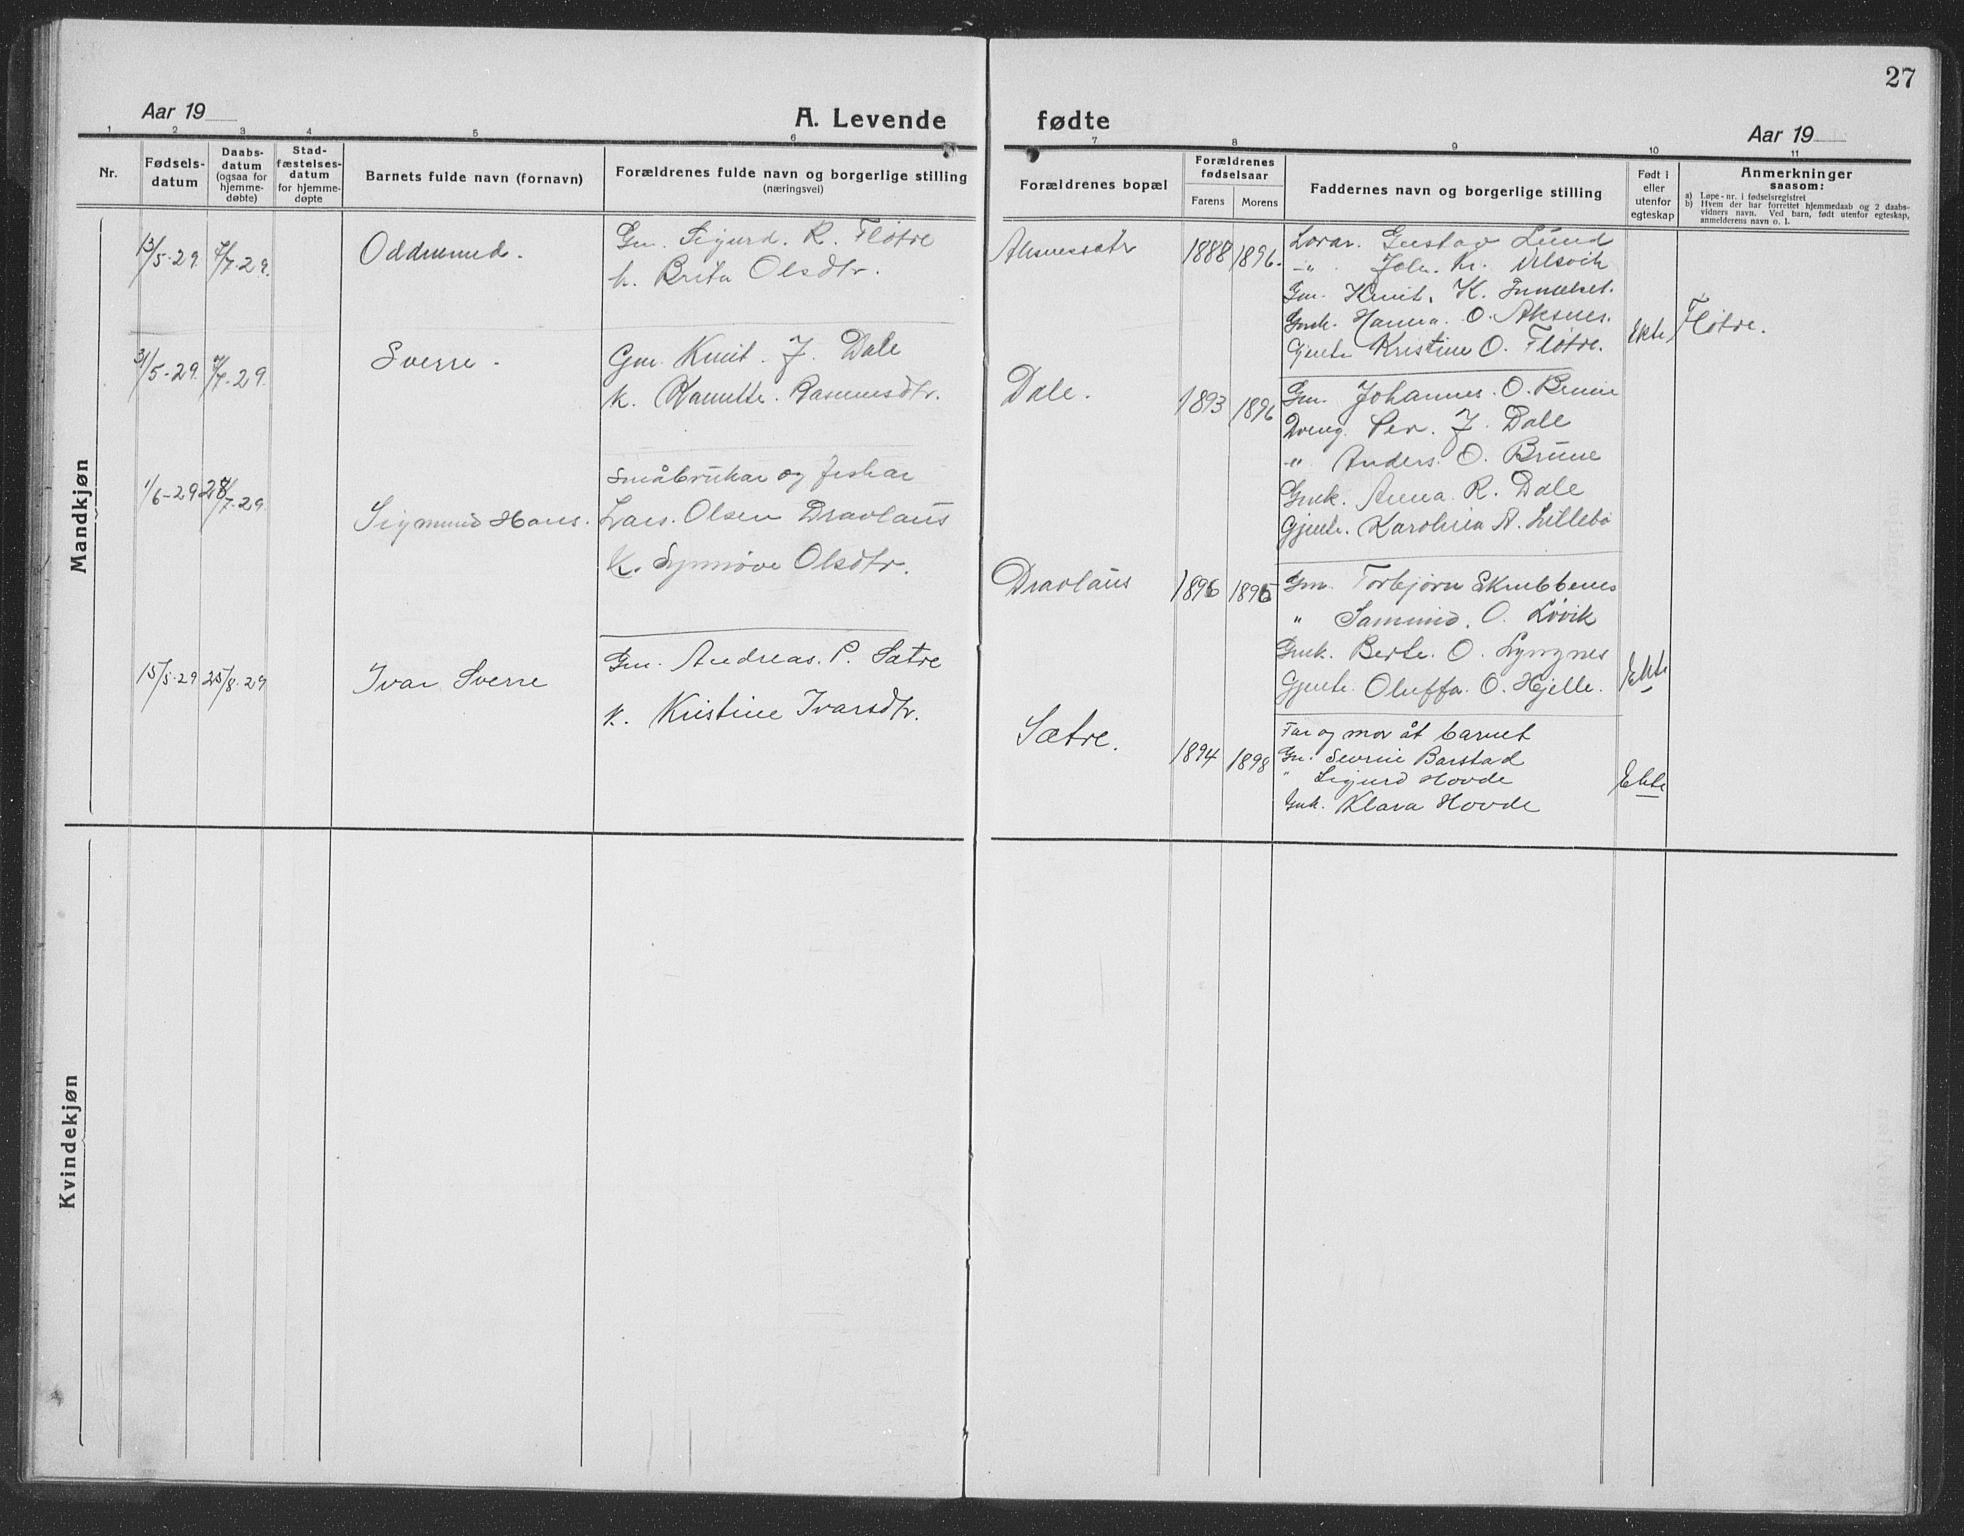 27
Aar 19
A. Levende
fødte
Aar 19
1 2 3 4 5 6 7 8 9 10 11
Nr.
Fødsels-
datum
Daabs-
datum
(ogsaa for
hjemme-
døbte)
Stad-
fæstelses-
datum
for hjemme-
døpte
Barnets fulde navn (fornavn)
Forældrenes fulde navn og borgerlige stilling
(næringsvei)
Forældrenes bopæl
Forældrenes
fødselsaar
Farens
Morens
Faddernes navn og borgerlige stilling
Født i
eller
utenfor
egteskap
Anmerkninger
saasom:
a) Løpe-nr. i fødselsregistret
b) Hvem der har forrettet hjemmedaab og 2 daabs-
vidners navn. Ved barn, født utenfor egteskap,
anmelderens navn o. l.
Mandkjøn
13/5-29 7/7-29.
Oddmund.
Gm. Sigurd. R. Fløtre
k. Brita Olsdtr.
1888 1896.
Lærar. Gustav Lund
-"- Joh. Kr.
Gm. Knut. K.
Gmk. Hanna. O. Aksnes.
Gjente Kristine O. Fløtre.
Ekte
Fløtre.
31/5-29. 7/7-29.
Sverre.
Gm. Knut. J. Dale
k. Rasmusdtr.
Dale.
1893 1896
Gm. Johannes. O. Brune
Dreng. Per. J. Dale
-"- Anders. O. Brune
Gmk. Anna. R. Dale
Gjente. Karolina A. Lillebø
1/6-29 28/7-29.
Sigmund Hans.
Småbrukar og fiskar
Lars. Olsen Dravlaus
K. Synnøve Olsdtr.
Dravlaus
1896 1895
Gm. Torbjørn Skrubbenes
" Samund. O. Løvik
Gmk. Berte. O. Lyngnes
Gjente. Oluffa. O. Hjelle.
Ekte
15/5-29 25/8-29
Ivar Sverre
Gm. Andreas. P. Sætre
k. Kristine Ivarsdtr.
Sætre.
1894 1898
Far og mor åt barnet
Gm. Sevrin Barstad
" Sigurd Hovde
Gmk. Klara Hovde
Ekte
Kvindekjøn